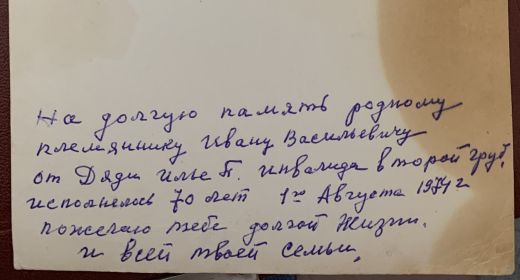 На долгую память родному
племяннику Ивану Васильевичу
от Дяди Илье П. инвалида второй груп.
исполнелось 70 лет 1го Августа 1974 г
пожелаю тебе долгой жизни.
и всей твоей семьи.